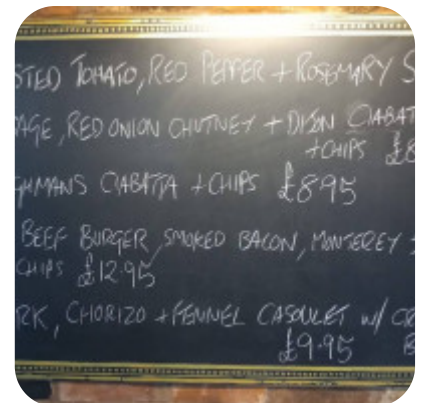 STED TOMATO, RED PEPPER + ROSEMARY S
AGE, RED ONION CHUTNEY + DIJON CIABAT
+CHIPS £8
GHMANS CIABATTA + CHIPS £8.95
BEEF BURGER, SMOKED BACON, MONTEREY
CHIPS £12.95
RK, CHORIZO + FENNEL CASOULET W/ CR
£9.95 B